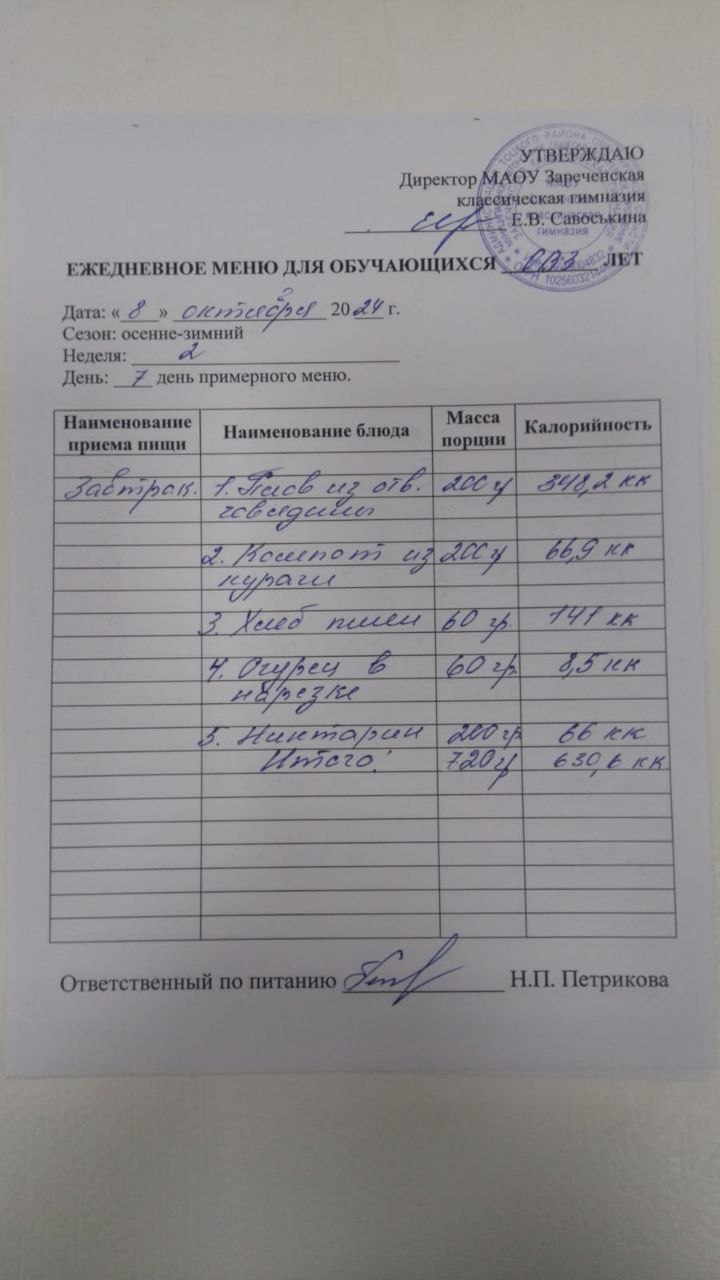 УТВЕРЖДАЮ
Директор МАОУ Зареченская
классическая гимназия
Е.В. Савоськина
ЕЖЕДНЕВНОЕ МЕНЮ ДЛЯ ОБУЧАЮЩИХСЯ ОВЗ ЛЕТ
Дата: « 8 » октября 2024 г.
Сезон: осенне-зимний
Неделя: 2
День: 7 день примерного меню.
Наименование приема пищи Наименование блюда Масса порции Калорийность
Завтрак. 1. Плов из отв. 200 г 348,2 кк
говядины
2. Компот из 200 г 66,9 кк
кураги
3. Хлеб пшен 60 гр. 141 кк
4. Огурец в 60 гр 8,5 кк
нарезке
5. Никтарин 200 гр 66 кк
Итого: 720 гр 630,6 кк
Ответственный по питанию Н.П. Петрикова